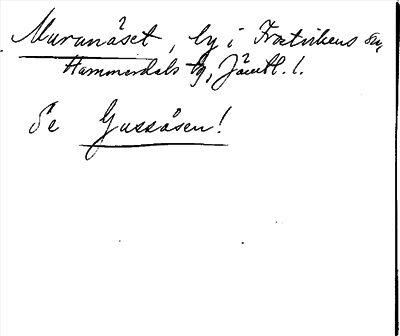 Muranäset, by i Frostvikens sn,
Hammerdals tg, Jämtl. l.
Se Gussåsen!